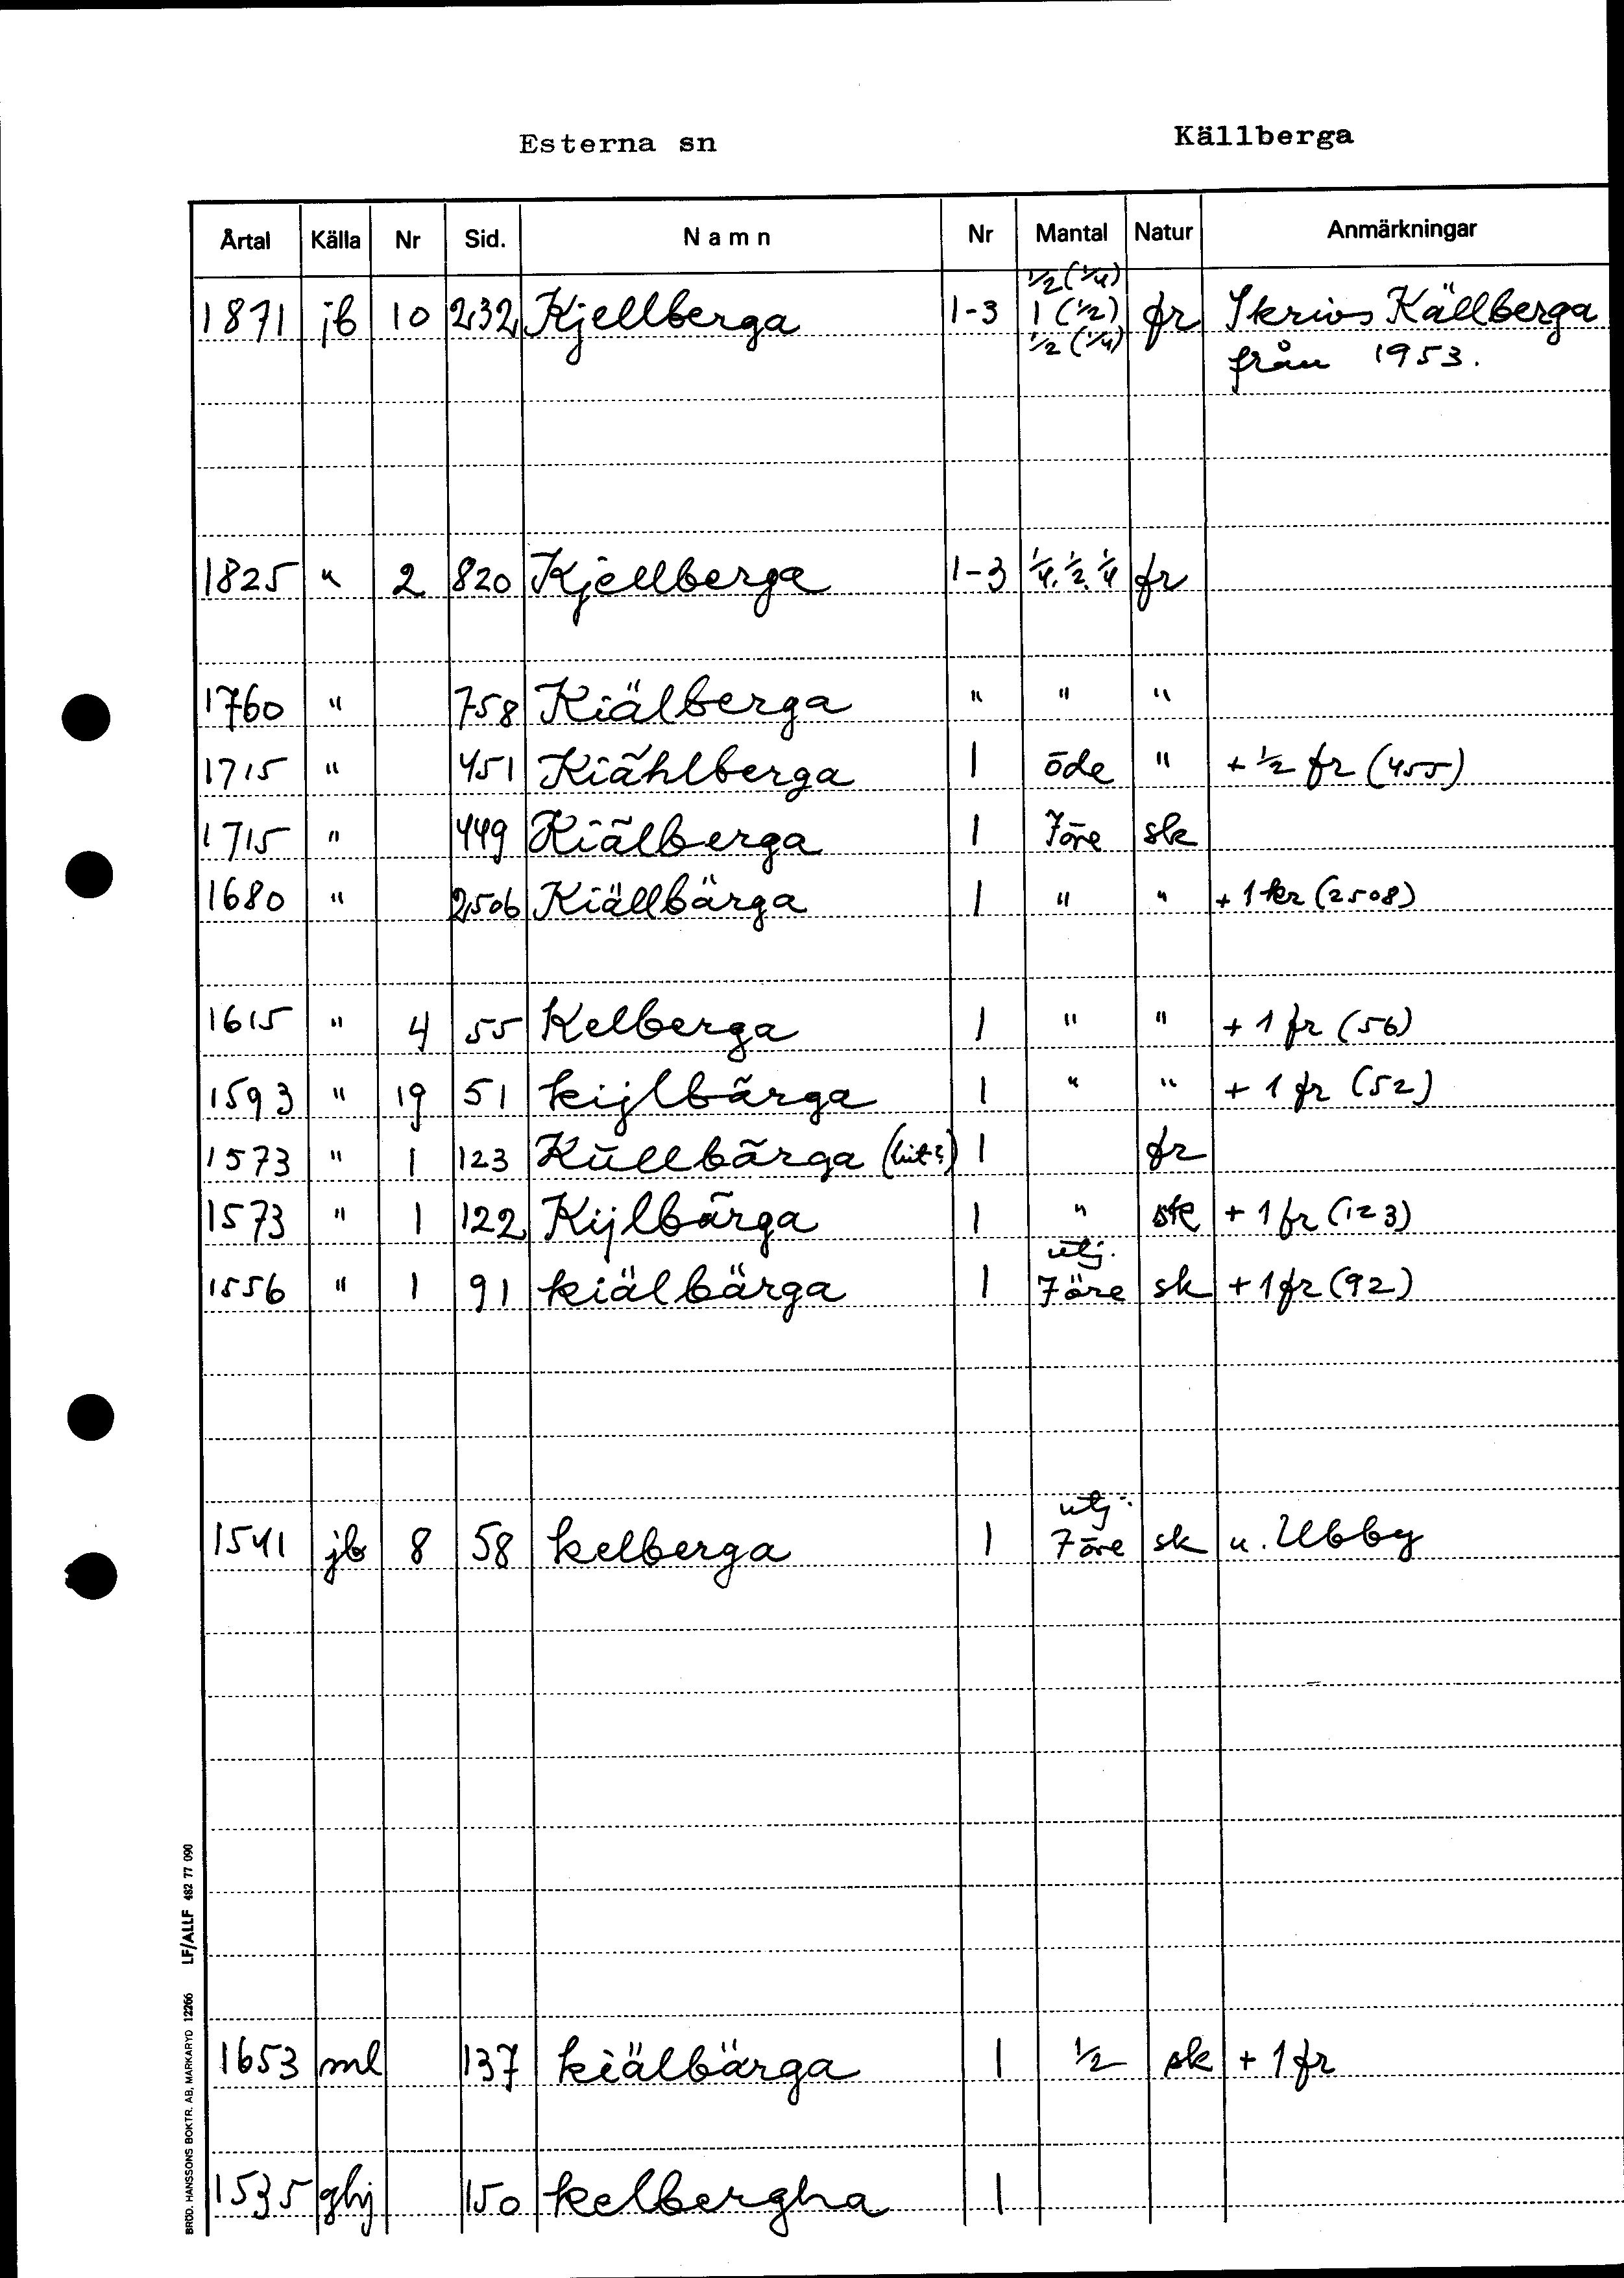 Esterna sn Källberga
Årtal Källa Nr Sid. Namn Nr Mantal Natur Anmärkningar
½ (¼)
1871 jb 10 232 Kjellberga 1-3 1 (½) fr Skrivs Källberga
½ (¼) från 1953.
1825 " 2 820 Kjellberga 1-3 ¼, ½, ¼ fr
1760 " 758 Kiälberga " " "
1715 " 451 Kiãhlberga 1 öde " + ½ fr (455)
1715 " 449 Kiãlberga 1 7öre sk
1680 " 2506 Kiällbärga 1 " " + 1 kr (2508)
1615 " 4 55 Kelberga 1 " " + 1 fr (56)
1593 " 19 51 kijlbãrga 1 " " + 1 fr (52)
1573 " 1 123 Kŭllbãrga 1 fr
1573 " 1 122 Kijlbãrga 1 " sk + 1 fr (123)
utj.
1556 " 1 91 kiälbärga 1 7öre sk + 1 fr (92)
utj.
1541 jb 8 58 kelberga 1 7öre sk u. Ubby
1653 ml 137 kiälbärga 1 ½ sk + 1 fr
1535 ghj 150 kelbergha 1
BRÖD. HANSSONS BOKTR. AB, MARKARYD 12266 LF/ALLF 482 77 090